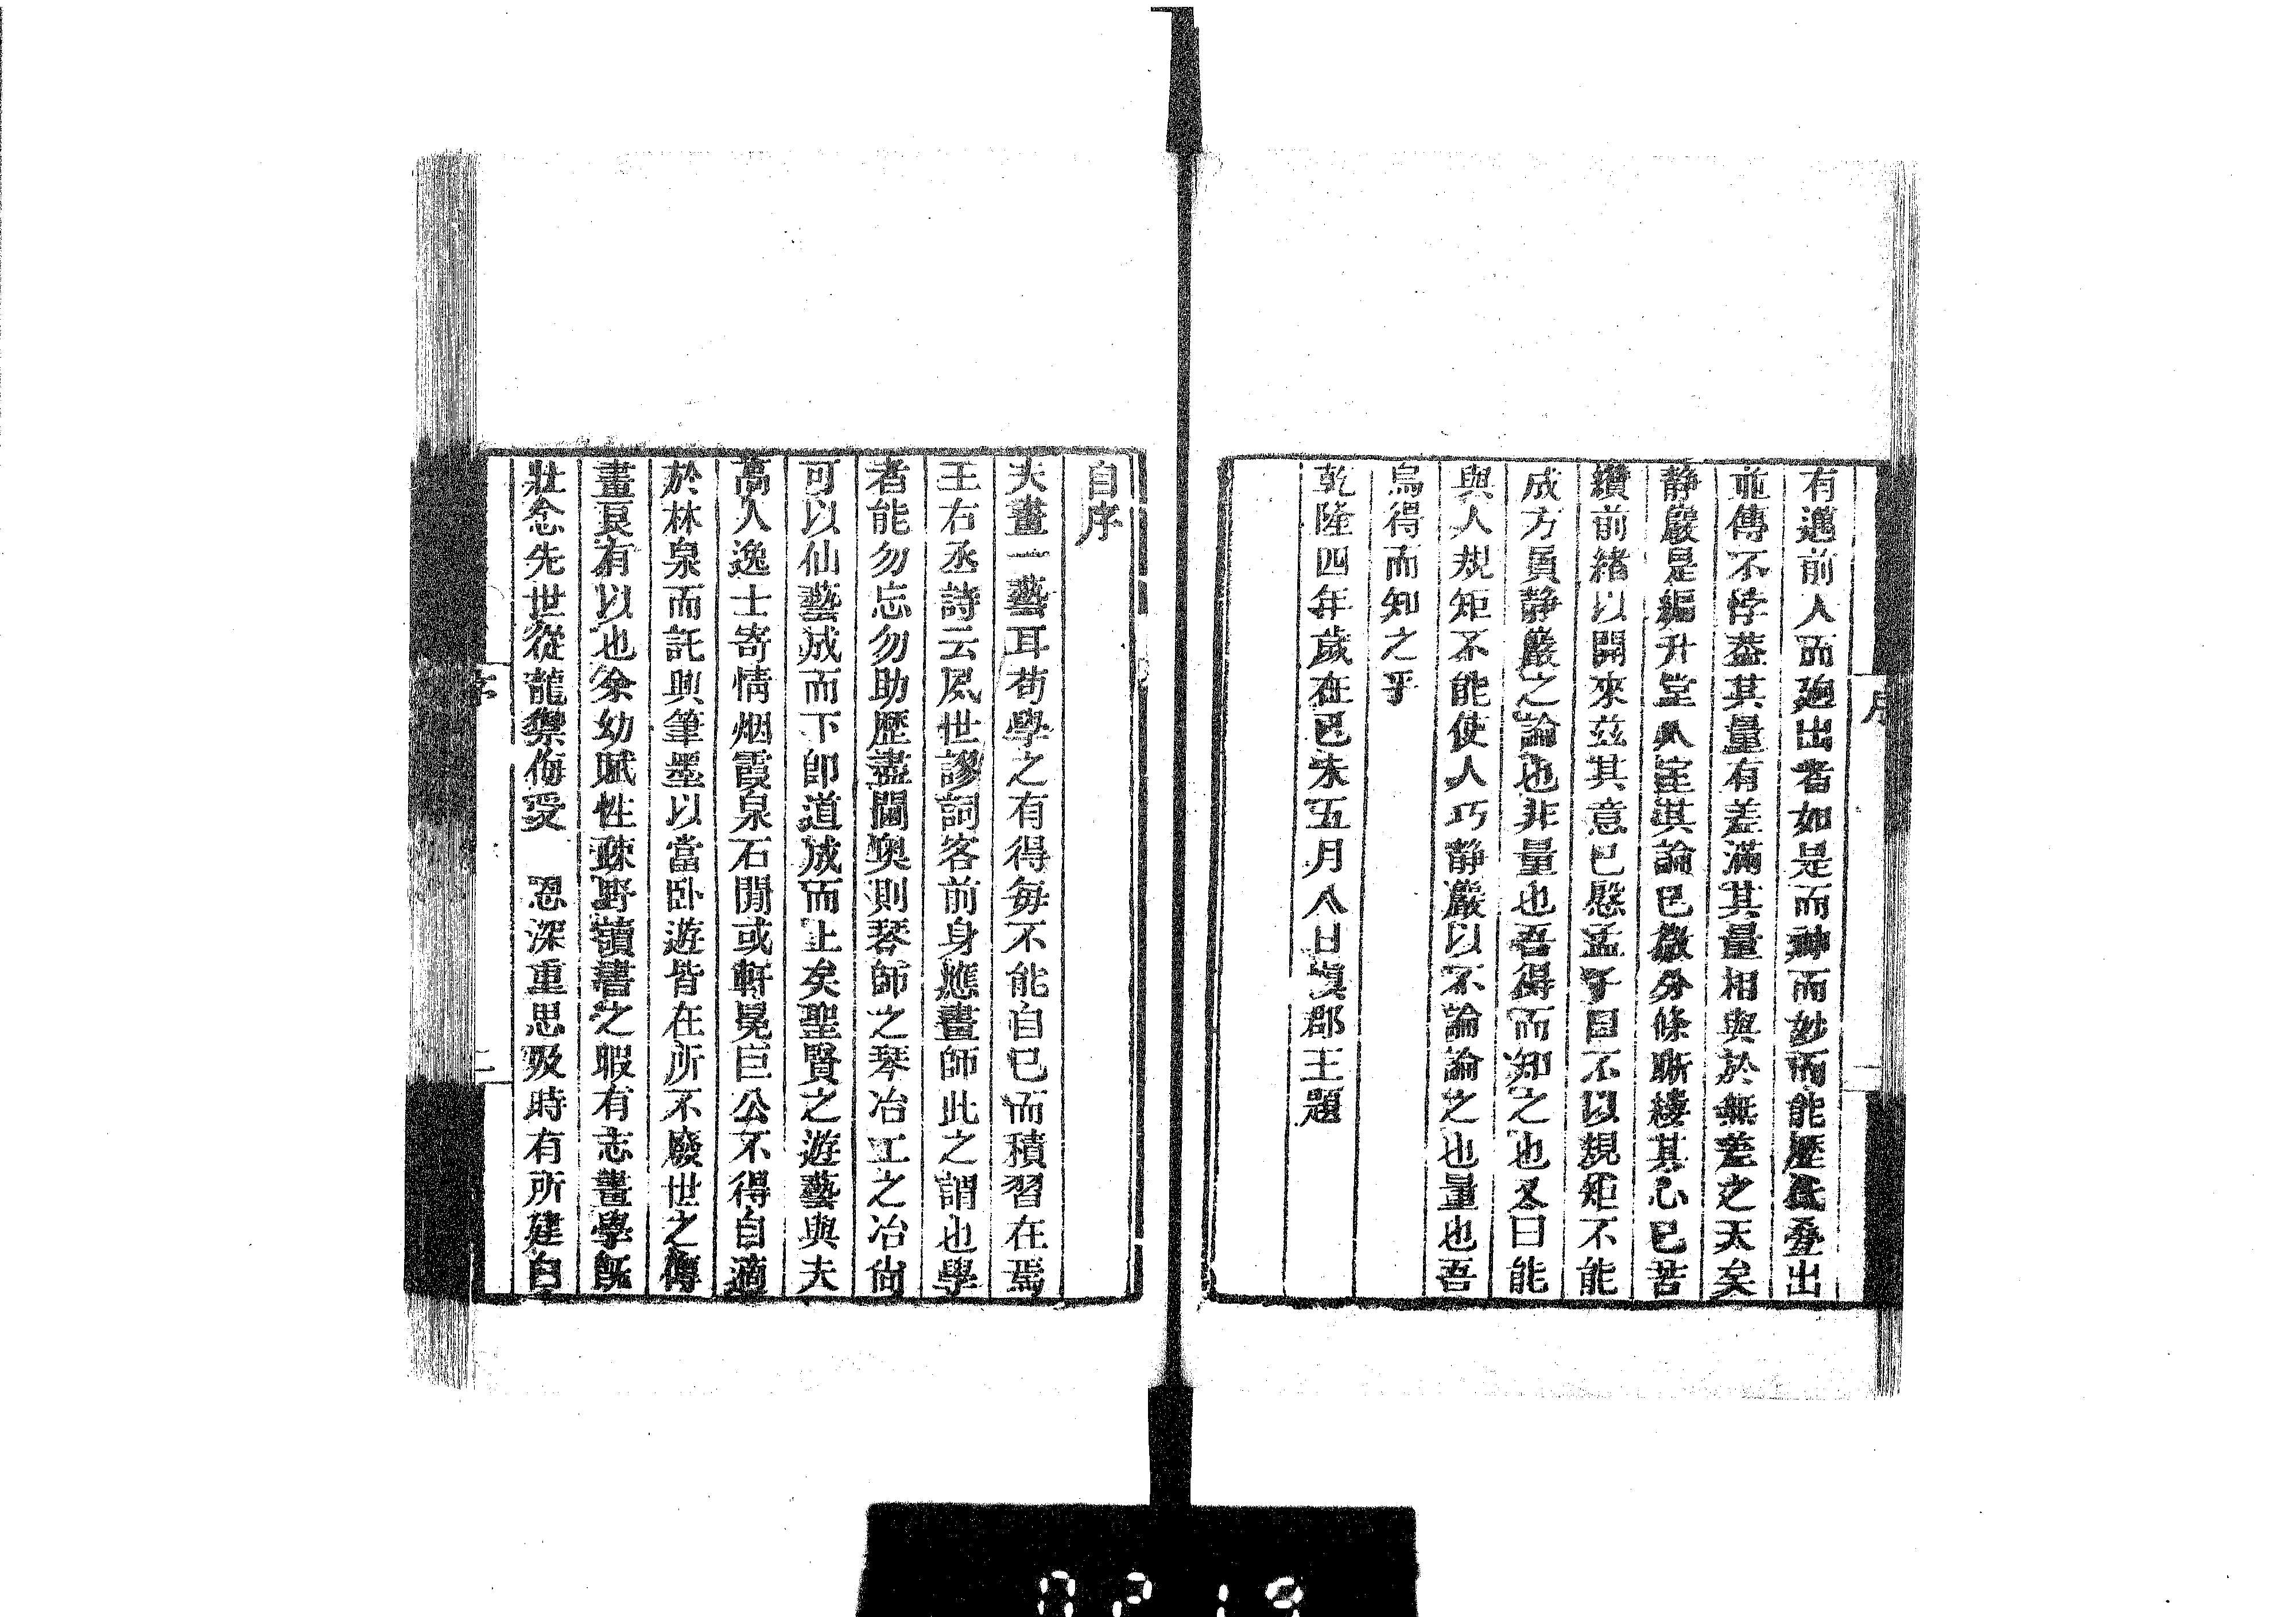 序
有邁前人而迥出者如是而神而妙而能歷代叠出
並傳不悖葢其量有差滿其量相與於無差之天矣
静巖是編升堂入室淇論已微分條晰縷其心已苦
纘前緒以開來玆其意已慇孟子曰不以規矩不能
成方員静巖之論也非量也吾得而知之也又曰能
與人規矩不能使人巧静巖以不論論之也量也吾
烏得而知之乎
乾隆四年歲在已未五月八日慎郡王題
自序
夫畫一藝耳苟學之有得每不能自已而積習在焉
王右丞詩云夙世謬詞客前身應畫師此之謂也學
者能勿忘勿助歷盡閫奥則琴師之琴冶工之冶尙
可以仙藝成而下卽道成而上矣聖賢之遊藝與夫
高人逸士寄情烟霞泉石閒或軒冕巨公不得自適
於林泉而託興筆墨以當卧遊皆在所不廢世之傳
畫良有以也余幼賦性疎野讀書之暇有志畫學旣
壯念先世從龍禦侮受 恩深重思及時有所建白
序
二
0219